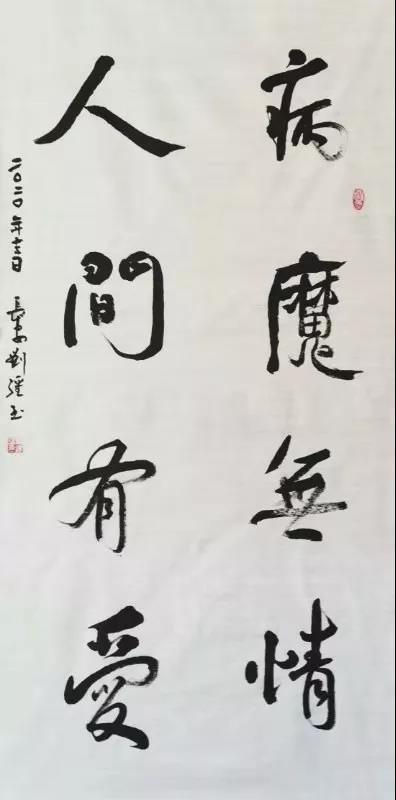 病魔無情
人間有愛
二〇二〇年 長安劉